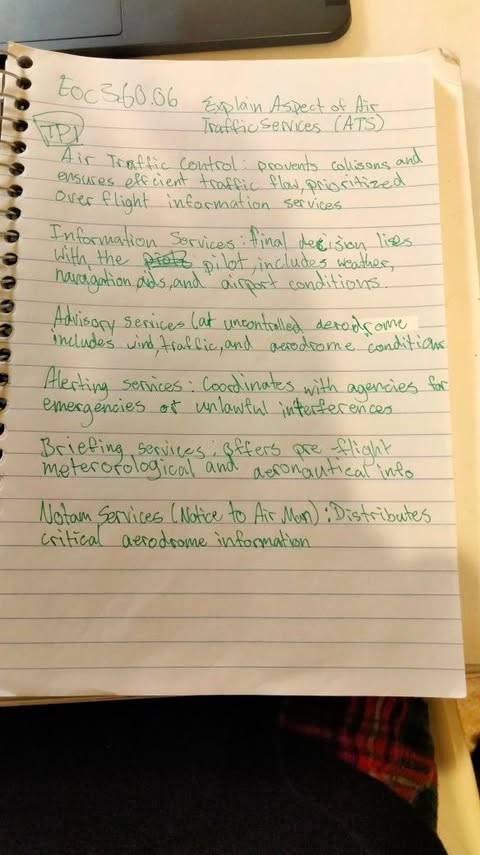 EOC 360.06 Explain Aspect of Air
Traffic Services (ATS)
TP1
Air Traffic Control: provents collisons and
ensures efficient traffic flow, prioritized
over flight information services
Information Services: final decision lies
with the pilot, includes weather,
navagation aids, and airport conditions.
Advisory services (at uncontrolled aerodrome
includes wind, traffic, and aerodrome conditions
Alerting services: Coordinates with agencies for
emergencies or unlawful interferences
Briefing services: offers pre flight
meterorological and aeronautical info
Notam Services (Notice to Air Man): Distributes
critical aerodrome information